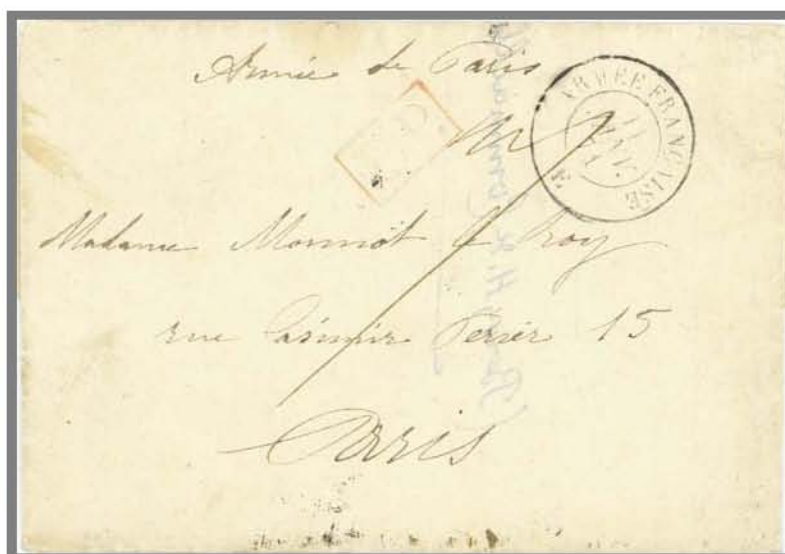 Armée de Paris
ARMÉE FRANÇAISE
11
JANV.
71
Madame Monniot le Roy
rue Casimir Perier 15
Paris